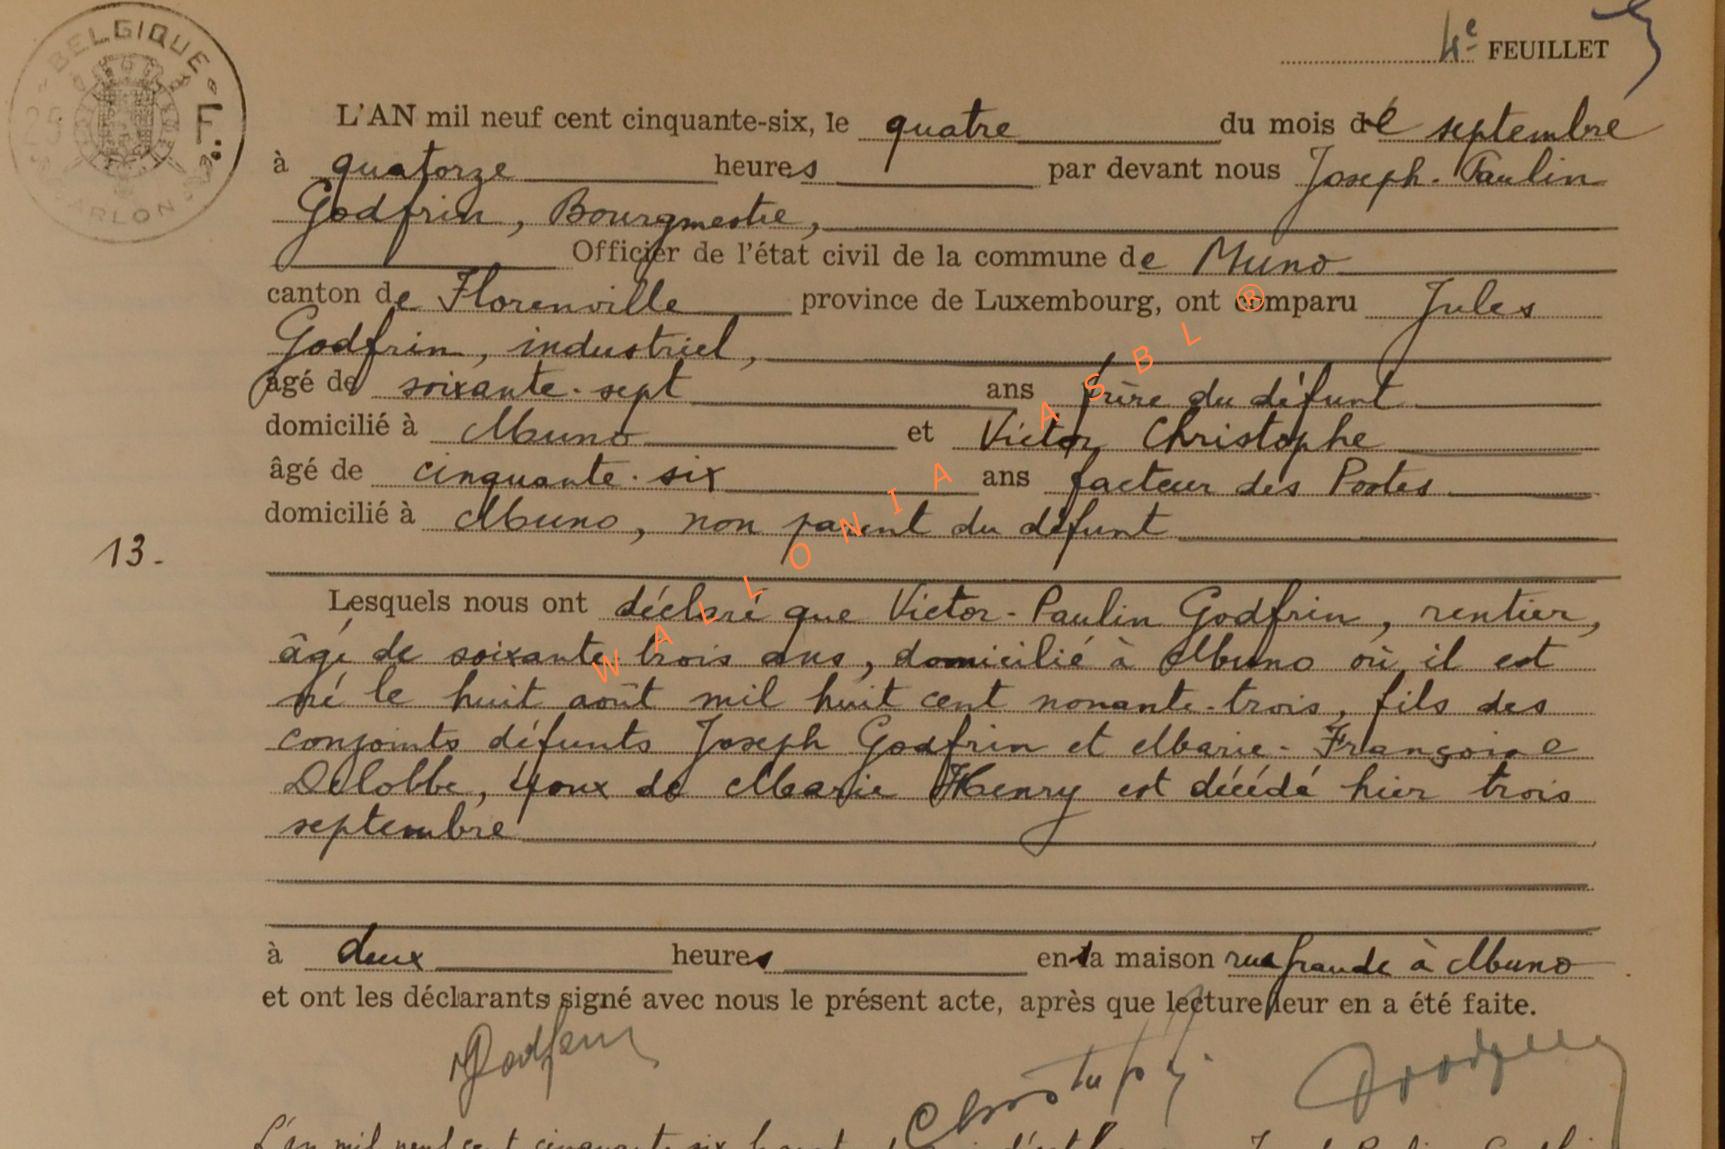 BELGIQUE
25 F.
ARLON
4e FEUILLET
L'AN mil neuf cent cinquante-six, le quatre du mois de septembre
à quatorze heures par devant nous Joseph-Paulin
Godfrin, Bourgmestre,
Officier de l'état civil de la commune de Muno
canton de Florenville province de Luxembourg, ont comparu Jules
Godfrin, industriel,
âgé de soixante-sept ans frère du défunt
domicilié à Muno et Victor Christophe
âgé de cinquante-six ans facteur des Postes
domicilié à Muno, non parent du défunt
13.
Lesquels nous ont déclaré que Victor-Paulin Godfrin, rentier,
âgé de soixante trois ans, domicilié à Muno où il est
né le huit août mil huit cent nonante-trois, fils des
conjoints défunts Joseph Godfrin et Marie-Françoise
Delobbe, époux de Marie Henry est décédé hier trois
septembre
à deux heures en la maison rue grande à Muno
et ont les déclarants signé avec nous le présent acte, après que lecture leur en a été faite.
JGodfrin
Christophe
L'an mil neuf cent cinquante six
WALLONIA ASBL ®